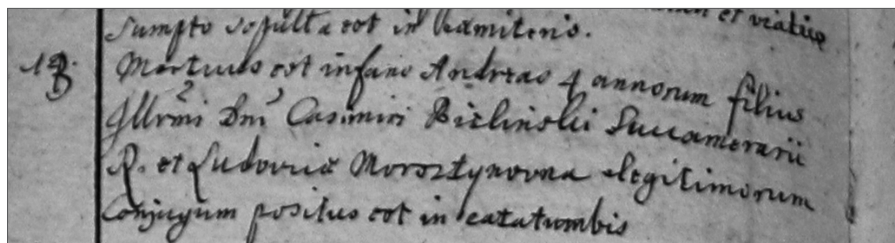 et viatico
Sumpto sepulta est in Kamitenis.
18. Mortuus est infans Andreas 4 annorum filius
Illrmi Dni Casimiri Bielinski Succamerarii
R. et Ludovicæ Morsztynovna legitimorum
Conjugum positus est in catatumbis